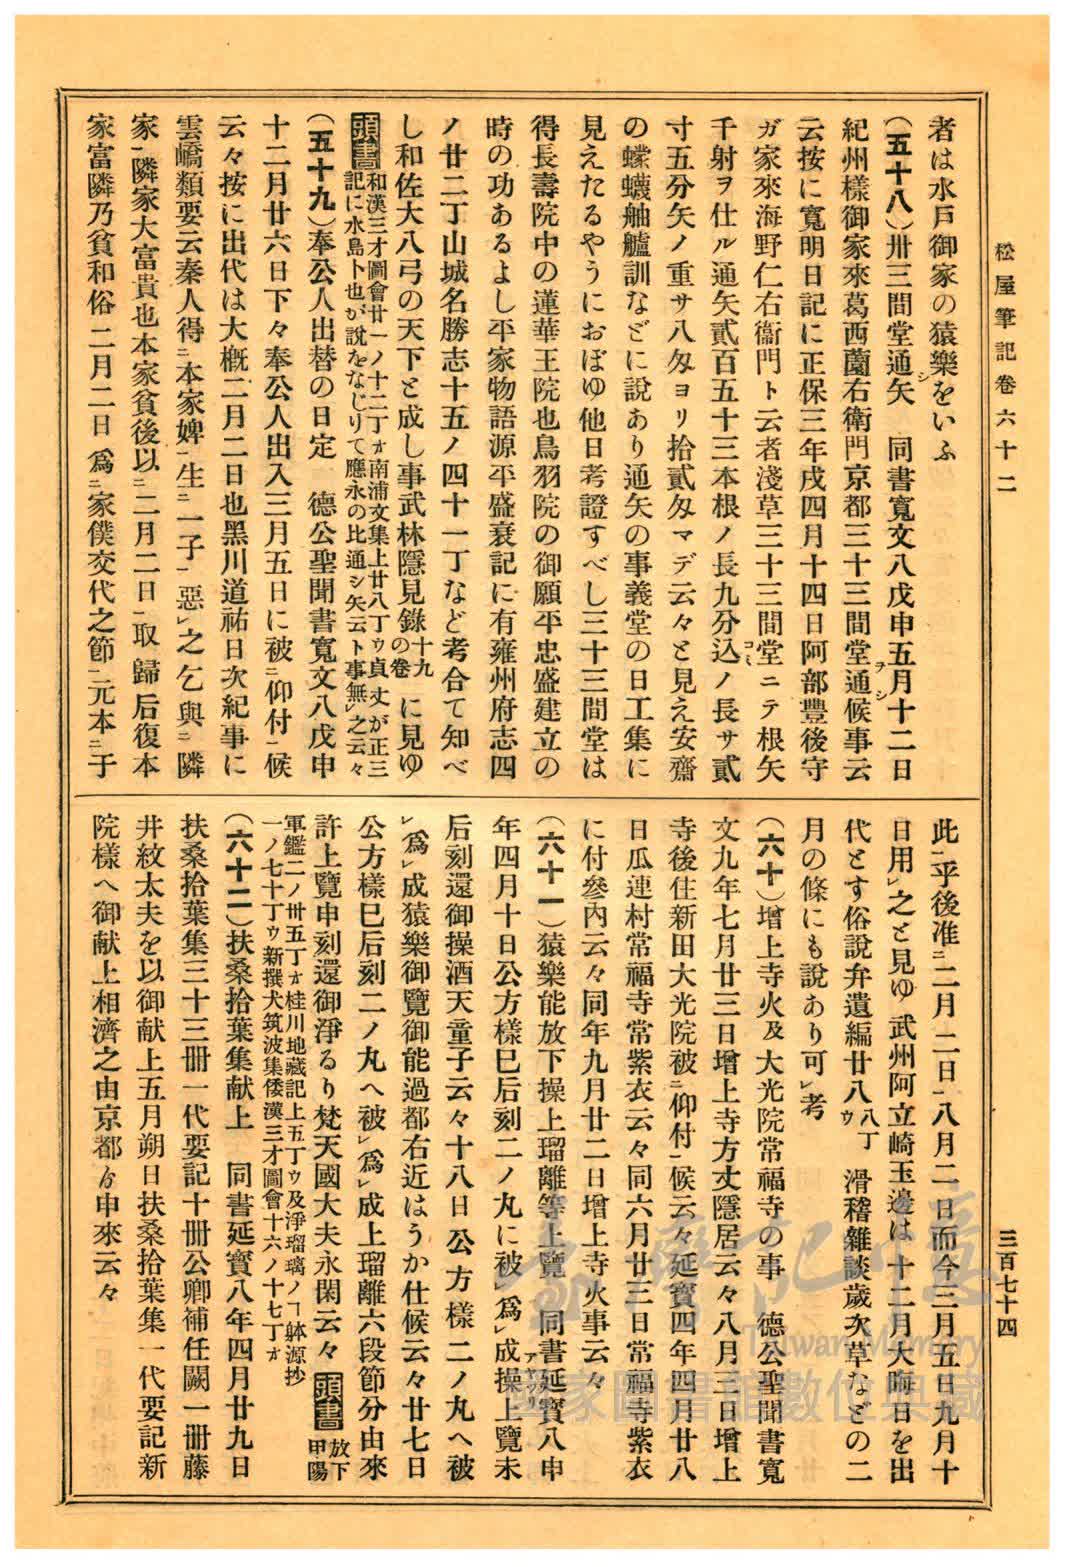 松屋筆記卷六十二
三百七十四
者は水戸御家の猿樂をいふ
（五十八）卅三間堂通シ矢　同書寛文八戊申五月十二日
紀州樣御家來葛西薗右衛門京都三十三間堂通ヲシ候事云
云按に寛明日記に正保三年戌四月十四日阿部豐後守
ガ家來海野仁右衞門ト云者淺草三十三間堂ニテ根矢
千射ヲ仕ル通矢貳百五十三本根ノ長九分込コミノ長サ貳
寸五分矢ノ重サ八匁ヨリ拾貳匁マデ云々と見え安齋
の蠓蠛舳艫訓などに説あり通矢の事義堂の日工集に
見えたるやうにおぼゆ他日考證すべし三十三間堂は
得長壽院中の蓮華王院也鳥羽院の御願平忠盛建立の
時の功あるよし平家物語源平盛衰記に有雍州府志四
ノ廿二丁山城名勝志十五ノ四十一丁など考合て知べ
し和佐大八弓の天下と成し事武林隱見錄十九の卷に見ゆ
頭書和漢三才圖會廿一ノ十二丁ォ南浦文集上廿八丁ゥ貞丈が正三
記に水島卜也が説をなじりて應永の比通シ矢云ト事無レ之云々
（五十九）奉公人出替の日定　德公聖聞書寛文八戊申
十二月廿六日下々奉公人出入三月五日に被ニ仰付一候
云々按に出代は大概二月二日也黑川道祐日次紀事に
雲嶠類要云秦人得ニ本家婢一生ニ一子一惡レ之乞與ニ隣
家一隣家大富貴也本家貧後以ニ二月二日一取歸后復本
家富隣乃貧和俗二月二日爲ニ家僕交代之節一元本ニ于
此一乎後准ニ二月二日一八月二日而今三月五日九月十
日用レ之と見ゆ武州阿立崎玉邊は十二月大晦日を出
代とす俗説弁遺編廿八八丁ゥ滑稽雜談歲次草などの二
月の條にも説あり可レ考
（六十）增上寺火及大光院常福寺の事　德公聖聞書寛
文九年七月廿三日增上寺方丈隱居云々八月三日增上
寺後住新田大光院被ニ仰付一候云々延寳四年四月廿八
日瓜連村常福寺常紫衣云々同六月廿三日常福寺紫衣
に付參內云々同年九月廿二日增上寺火事云々
（六十一）猿樂能放下操上瑠離等上覽　同書延寳八申
年四月十日公方樣巳后刻二ノ丸に被レ爲レ成操アヤツリ上覽未
后刻還御操酒天童子云々十八日公方樣二ノ丸へ被
レ爲レ成猿樂御覽御能過都右近はうか仕候云々廿七日
公方樣巳后刻二ノ丸へ被レ爲レ成上瑠離六段節分由來
許上覽申刻還御淨るり梵天國大夫永閑云々頭書放下甲陽
軍鑑二ノ卅五丁ォ桂川地藏記上五丁ゥ及淨瑠璃ノヿ躰源抄
一ノ七十丁ゥ新撰犬筑波集倭漢三才圖會十六ノ十七丁ォ
（六十二）扶桑拾葉集献上　同書延寳八年四月廿九日
扶桑拾葉集三十三冊一代要記十冊公卿補任闕一冊藤
井紋太夫を以御献上五月朔日扶桑拾葉集一代要記新
院樣へ御献上相濟之由京都ゟ申來云々
臺灣記憶
Taiwan Memory
國家圖書館數位典藏